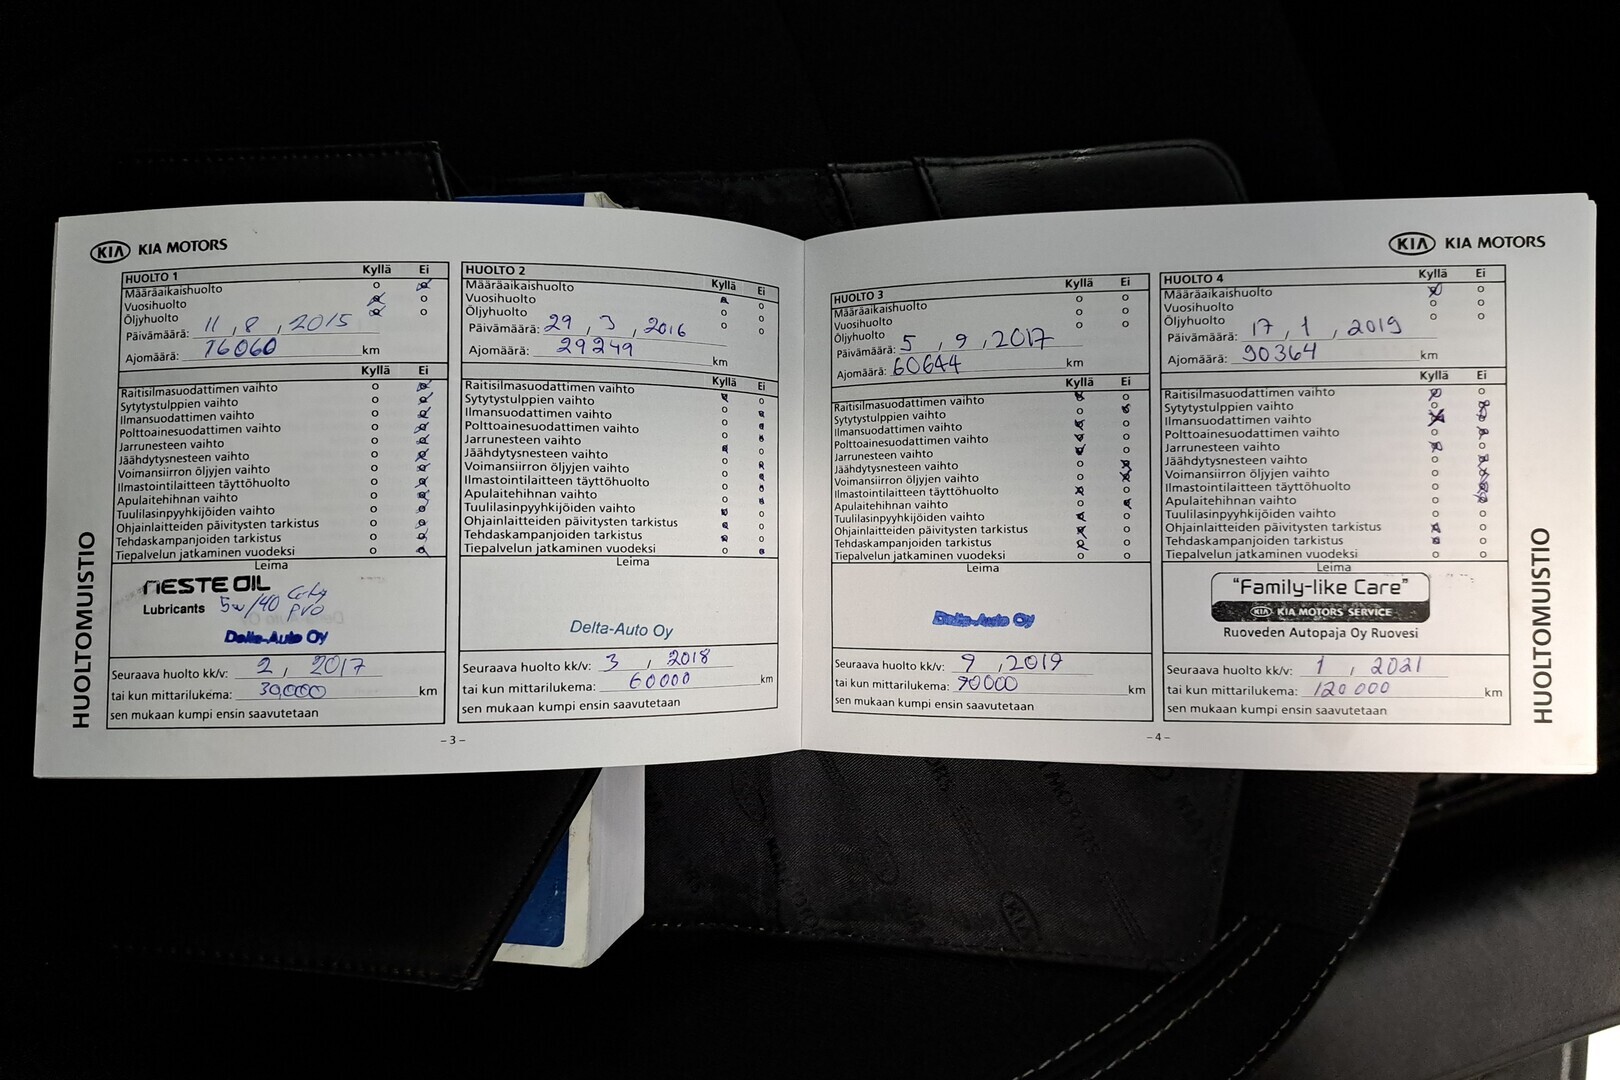 KIA KIA MOTORS
HUOLTO 1 Kyllä Ei
Määräaikaishuolto o o
Vuosihuolto o o
Öljyhuolto o o
Päivämäärä: 11 , 8 , 2015
Ajomäärä: 16060 km
Kyllä Ei
Raitisilmasuodattimen vaihto o o
Sytytystulppien vaihto o o
Ilmansuodattimen vaihto o o
Polttoainesuodattimen vaihto o o
Jarrunesteen vaihto o o
Jäähdytysnesteen vaihto o o
Voimansiirron öljyjen vaihto o o
Ilmastointilaitteen täyttöhuolto o o
Apulaitehihnan vaihto o o
Tuulilasinpyyhkijöiden vaihto o o
Ohjainlaitteiden päivitysten tarkistus o o
Tehdaskampanjoiden tarkistus o o
Tiepalvelun jatkaminen vuodeksi o o
Leima
NESTE OIL
Lubricants 5w/40 City
pro
Delta-Auto Oy
Seuraava huolto kk/v: 2 , 2017
tai kun mittarilukema: 30,000 km
sen mukaan kumpi ensin saavutetaan
HUOLTOMUISTIO
HUOLTO 2
Kyllä Ei
Määräaikaishuolto o
Vuosihuolto o o
Öljyhuolto o o
Päivämäärä: 29 , 3 , 2016
Ajomäärä: 29249 km
Kyllä Ei
Raitisilmasuodattimen vaihto o
Sytytystulppien vaihto o
Ilmansuodattimen vaihto o
Polttoainesuodattimen vaihto o
Jarrunesteen vaihto o
Jäähdytysnesteen vaihto o
Voimansiirron öljyjen vaihto o
Ilmastointilaitteen täyttöhuolto o
Apulaitehihnan vaihto o
Tuulilasinpyyhkijöiden vaihto o
Ohjainlaitteiden päivitysten tarkistus o
Tehdaskampanjoiden tarkistus o
Tiepalvelun jatkaminen vuodeksi o
Leima
Delta-Auto Oy
Seuraava huolto kk/v: 3 , 2018
tai kun mittarilukema: 60000 km
sen mukaan kumpi ensin saavutetaan
– 3 –
KIA KIA MOTORS
HUOLTO 3 Kyllä Ei
Määräaikaishuolto o o
Vuosihuolto o o
Öljyhuolto o o
Päivämäärä: 5 , 9 , 2017
Ajomäärä: 60644 km
Kyllä Ei
Raitisilmasuodattimen vaihto o
Sytytystulppien vaihto o
Ilmansuodattimen vaihto o
Polttoainesuodattimen vaihto o
Jarrunesteen vaihto o
Jäähdytysnesteen vaihto o
Voimansiirron öljyjen vaihto o
Ilmastointilaitteen täyttöhuolto o
Apulaitehihnan vaihto o
Tuulilasinpyyhkijöiden vaihto o
Ohjainlaitteiden päivitysten tarkistus o
Tehdaskampanjoiden tarkistus o
Tiepalvelun jatkaminen vuodeksi o o
Leima
Delta-Auto Oy
Seuraava huolto kk/v: 9 , 2019
tai kun mittarilukema: 90000 km
sen mukaan kumpi ensin saavutetaan
HUOLTO 4 Kyllä Ei
Määräaikaishuolto o
Vuosihuolto o o
Öljyhuolto o o
Päivämäärä: 17 , 1 , 2019
Ajomäärä: 90364 km
Kyllä Ei
Raitisilmasuodattimen vaihto o
Sytytystulppien vaihto o
Ilmansuodattimen vaihto o
Polttoainesuodattimen vaihto o
Jarrunesteen vaihto o
Jäähdytysnesteen vaihto o
Voimansiirron öljyjen vaihto o
Ilmastointilaitteen täyttöhuolto o
Apulaitehihnan vaihto o
Tuulilasinpyyhkijöiden vaihto o o
Ohjainlaitteiden päivitysten tarkistus o
Tehdaskampanjoiden tarkistus o
Tiepalvelun jatkaminen vuodeksi o o
Leima
"Family-like Care"
KIA KIA MOTORS SERVICE
Ruoveden Autopaja Oy Ruovesi
Seuraava huolto kk/v: 1 , 2021
tai kun mittarilukema: 120 000 km
sen mukaan kumpi ensin saavutetaan
– 4 –
HUOLTOMUISTIO